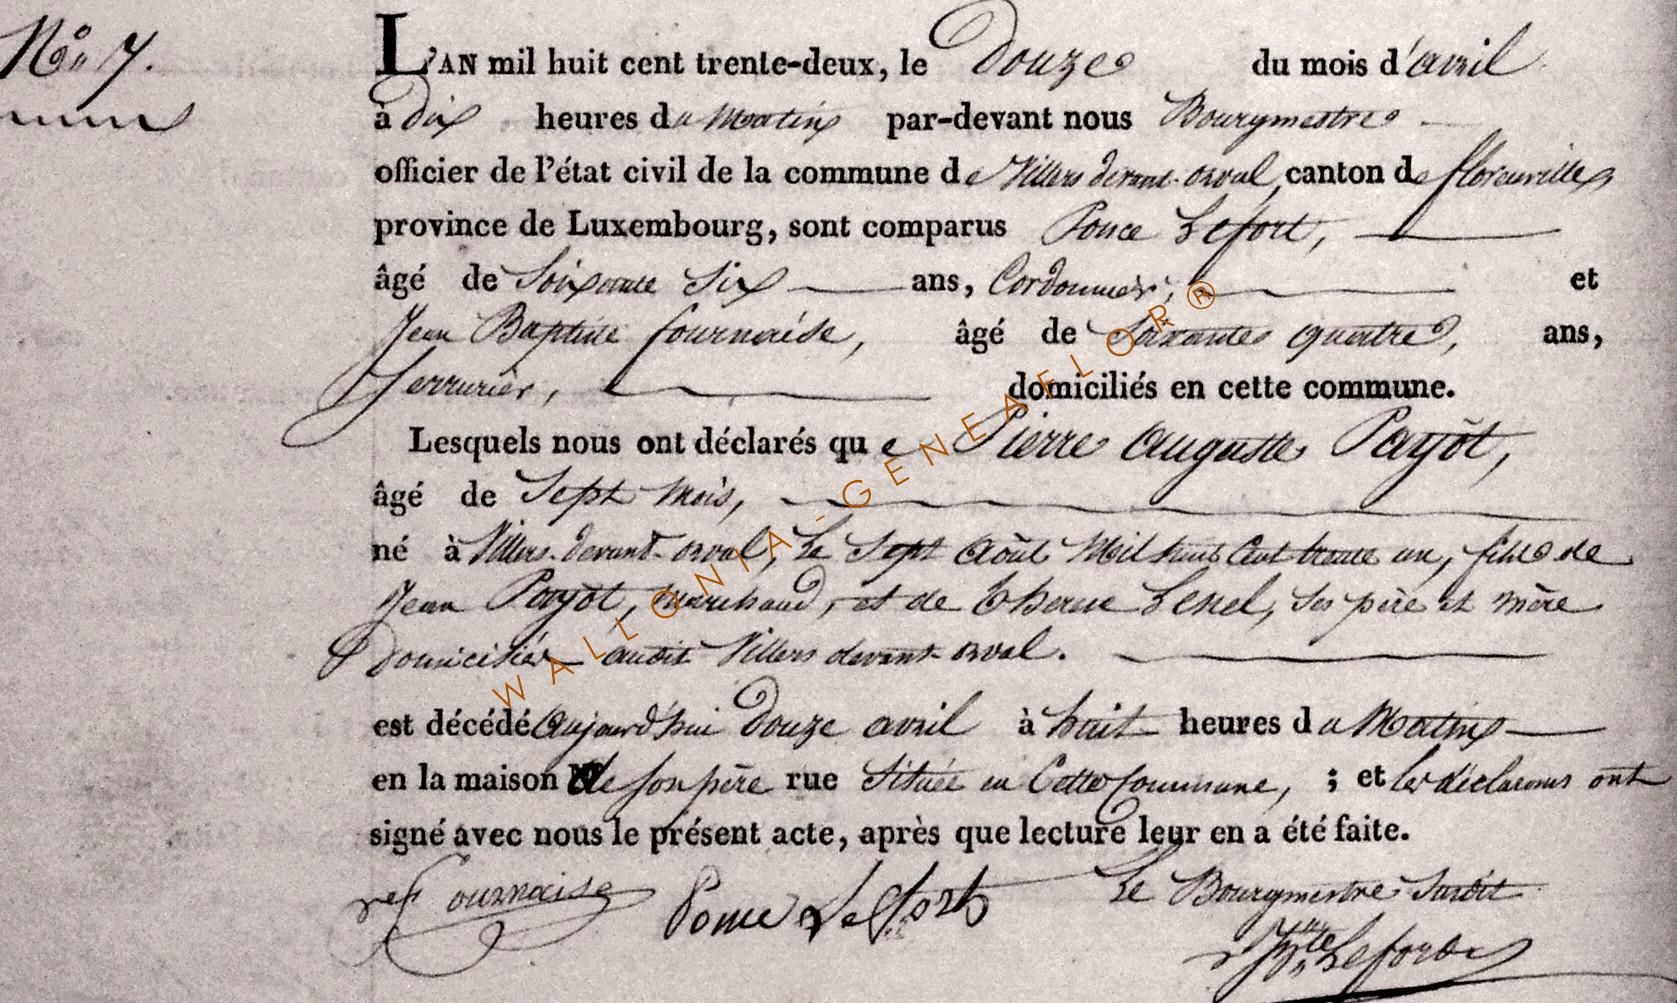 No 7.
L'AN mil huit cent trente-deux, le Douze du mois d'avril
à dix heures du Matin par-devant nous Bourgmestre
officier de l'état civil de la commune de Villers devant-orval, canton de florenville,
province de Luxembourg, sont comparus Ponce Lefort,
âgé de Soixante Six ans, Cordonnier, et
Jean Baptiste fournaise, âgé de Soixante quatre, ans,
Serrurier, domiciliés en cette commune.
Lesquels nous ont déclarés que Pierre auguste Payôt,
âgé de Sept mois,
né à Villers-devant-orval, Le Sept Août Mil huit Cent trente un, fils de
Jean Payôt, Marchand, et de Therese Lenel, Ses père et mère
Domiciliés audit Villers devant-orval.
est décédé aujourd'hui Douze avril à huit heures du Matin
en la maison de son père rue Située en Cette Commune, ; et les déclarans ont
signé avec nous le présent acte, après que lecture leur en a été faite.
fournaise Ponce Lefort Le Bourgmestre Susdit
Lefort
WALLONIA-GENEAFLOR®